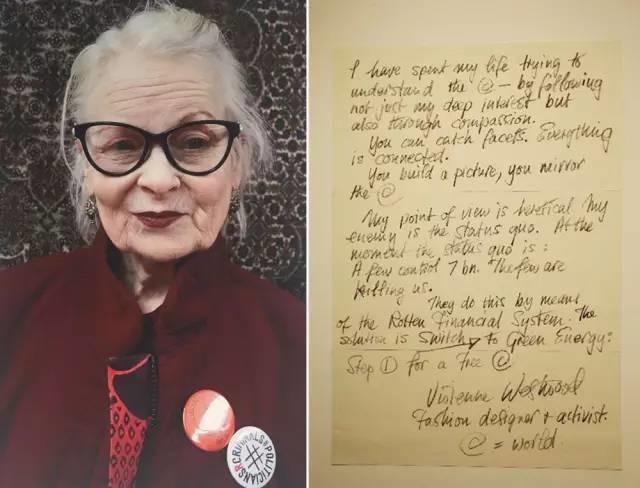 I have spent my life trying to
understand the @ – by following
not just my deep interest but
also through compassion.
You can catch facets. Everything
is connected.
You build a picture, you mirror
the @
My point of view is heretical My
enemy is the status quo. At the
moment the status quo is:
A few control 7 bn. The few are
killing us.
They do this by means
of the Rotten Financial System. The
solution is Switch to Green Energy:
Step 1 for a Free @
Vivienne Westwood
Fashion designer + activist.
@ = world.
POLITICIANS R CRIMINALS
#